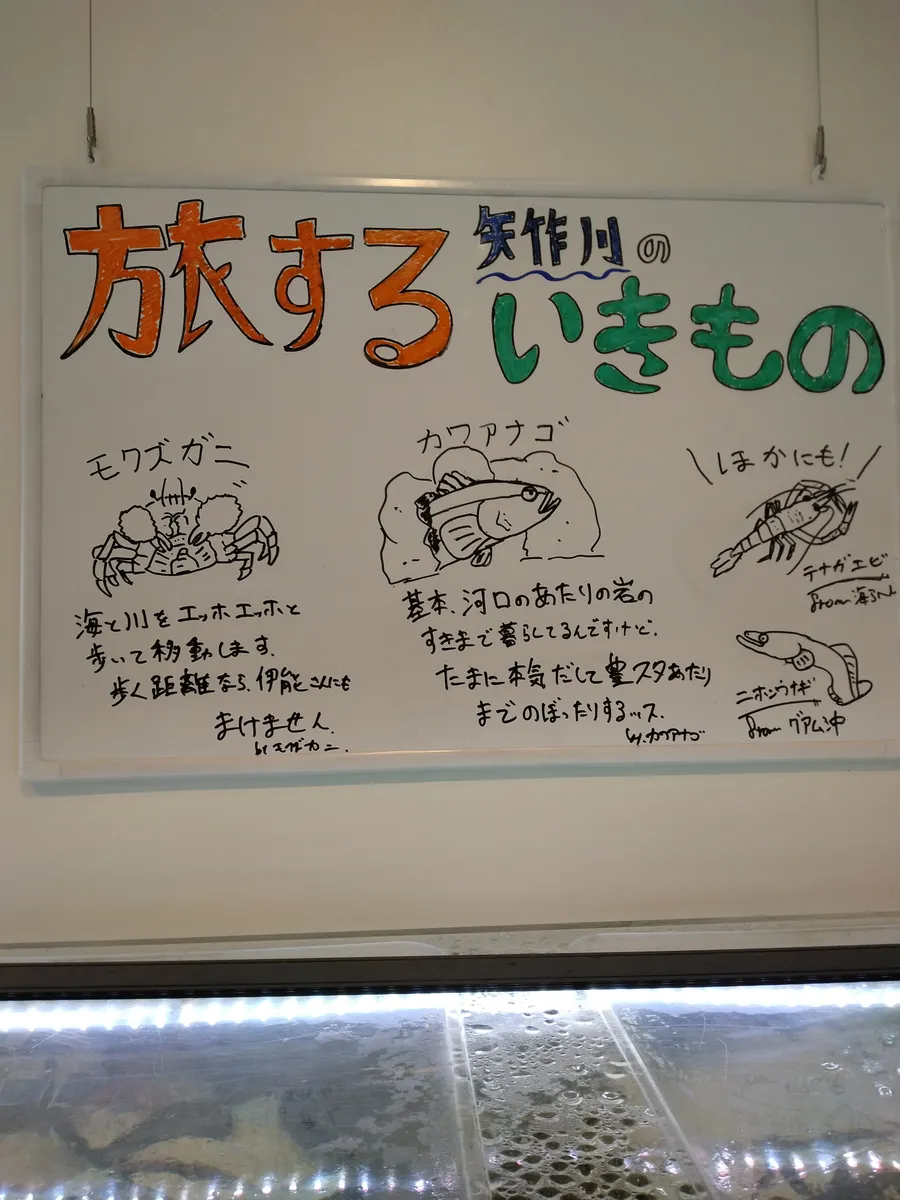 旅する
矢作川の
いきもの
モクズガニ
海と川をエッホエッホと
歩いて移動します。
歩く距離なら、伊能さんにも
まけません。
by モクズガニ.
カワアナゴ
基本、河口のあたりの岩の
すきまで暮らしてるんですけど、
たまに本気だして豊スタあたり
までのぼったりするッス.
by.カワアナゴ
\ほかにも!/
テナガエビ
from 海らへん
ニホンウナギ
from グアム沖